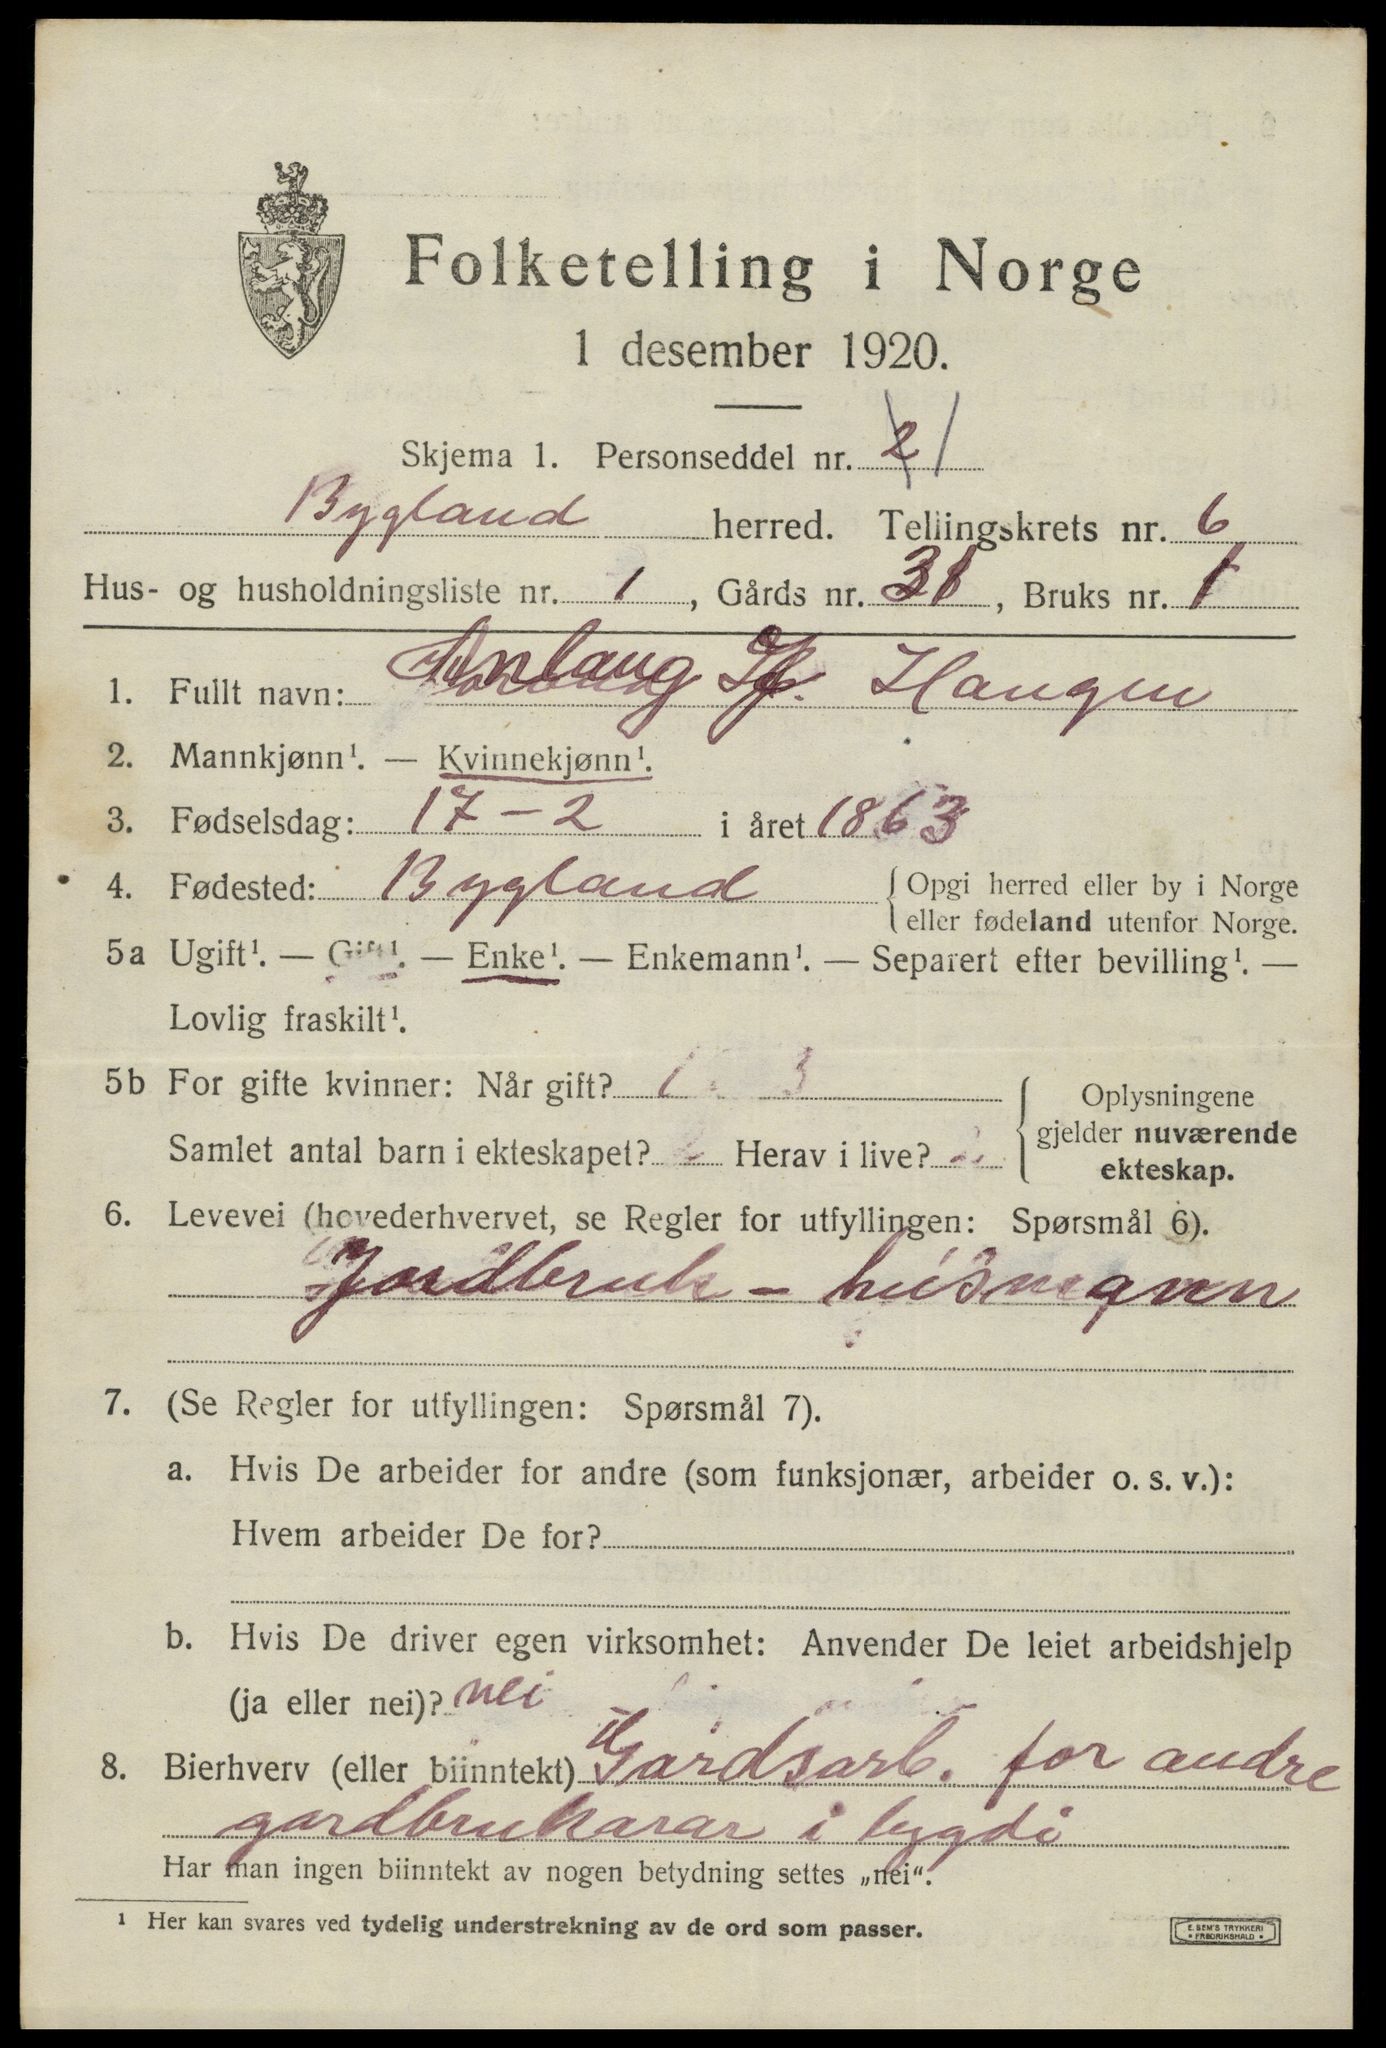 Folketelling i Norge
1 desember 1920.
Skjema 1. Personseddel nr. 2 1
Bygland herred. Tellingskrets nr. 6
Hus- og husholdningsliste nr. 1, Gårds nr. 31, Bruks nr. 1
1. Fullt navn: Anlaug Haugen
2. Mannkjønn¹. — Kvinnekjønn¹.
3. Fødselsdag: 17 - 2 i året 1863
4. Fødested: Bygland { Opgi herred eller by i Norge
eller fødeland utenfor Norge.
5a Ugift¹. — Gift¹. — Enke¹. — Enkemann¹. — Separert efter bevilling¹. —
Lovlig fraskilt¹.
5b For gifte kvinner: Når gift? 1 3
Samlet antal barn i ekteskapet? 2 Herav i live? 2
Oplysningene
gjelder nuværende
ekteskap.
6. Levevei (hovederhvervet, se Regler for utfyllingen: Spørsmål 6).
Jordbruk - husmann
7. (Se Regler for utfyllingen: Spørsmål 7).
a. Hvis De arbeider for andre (som funksjonær, arbeider o. s. v.):
Hvem arbeider De for?
b. Hvis De driver egen virksomhet: Anvender De leiet arbeidshjelp
(ja eller nei)? nei
8. Bierhverv (eller biinntekt) Gardsarb. for andre
gardbrukarar i bygdi
Har man ingen biinntekt av nogen betydning settes „nei“.
¹ Her kan svares ved tydelig understrekning av de ord som passer.
E. SEM'S TRYKKERI
• FREDRIKSHALD •